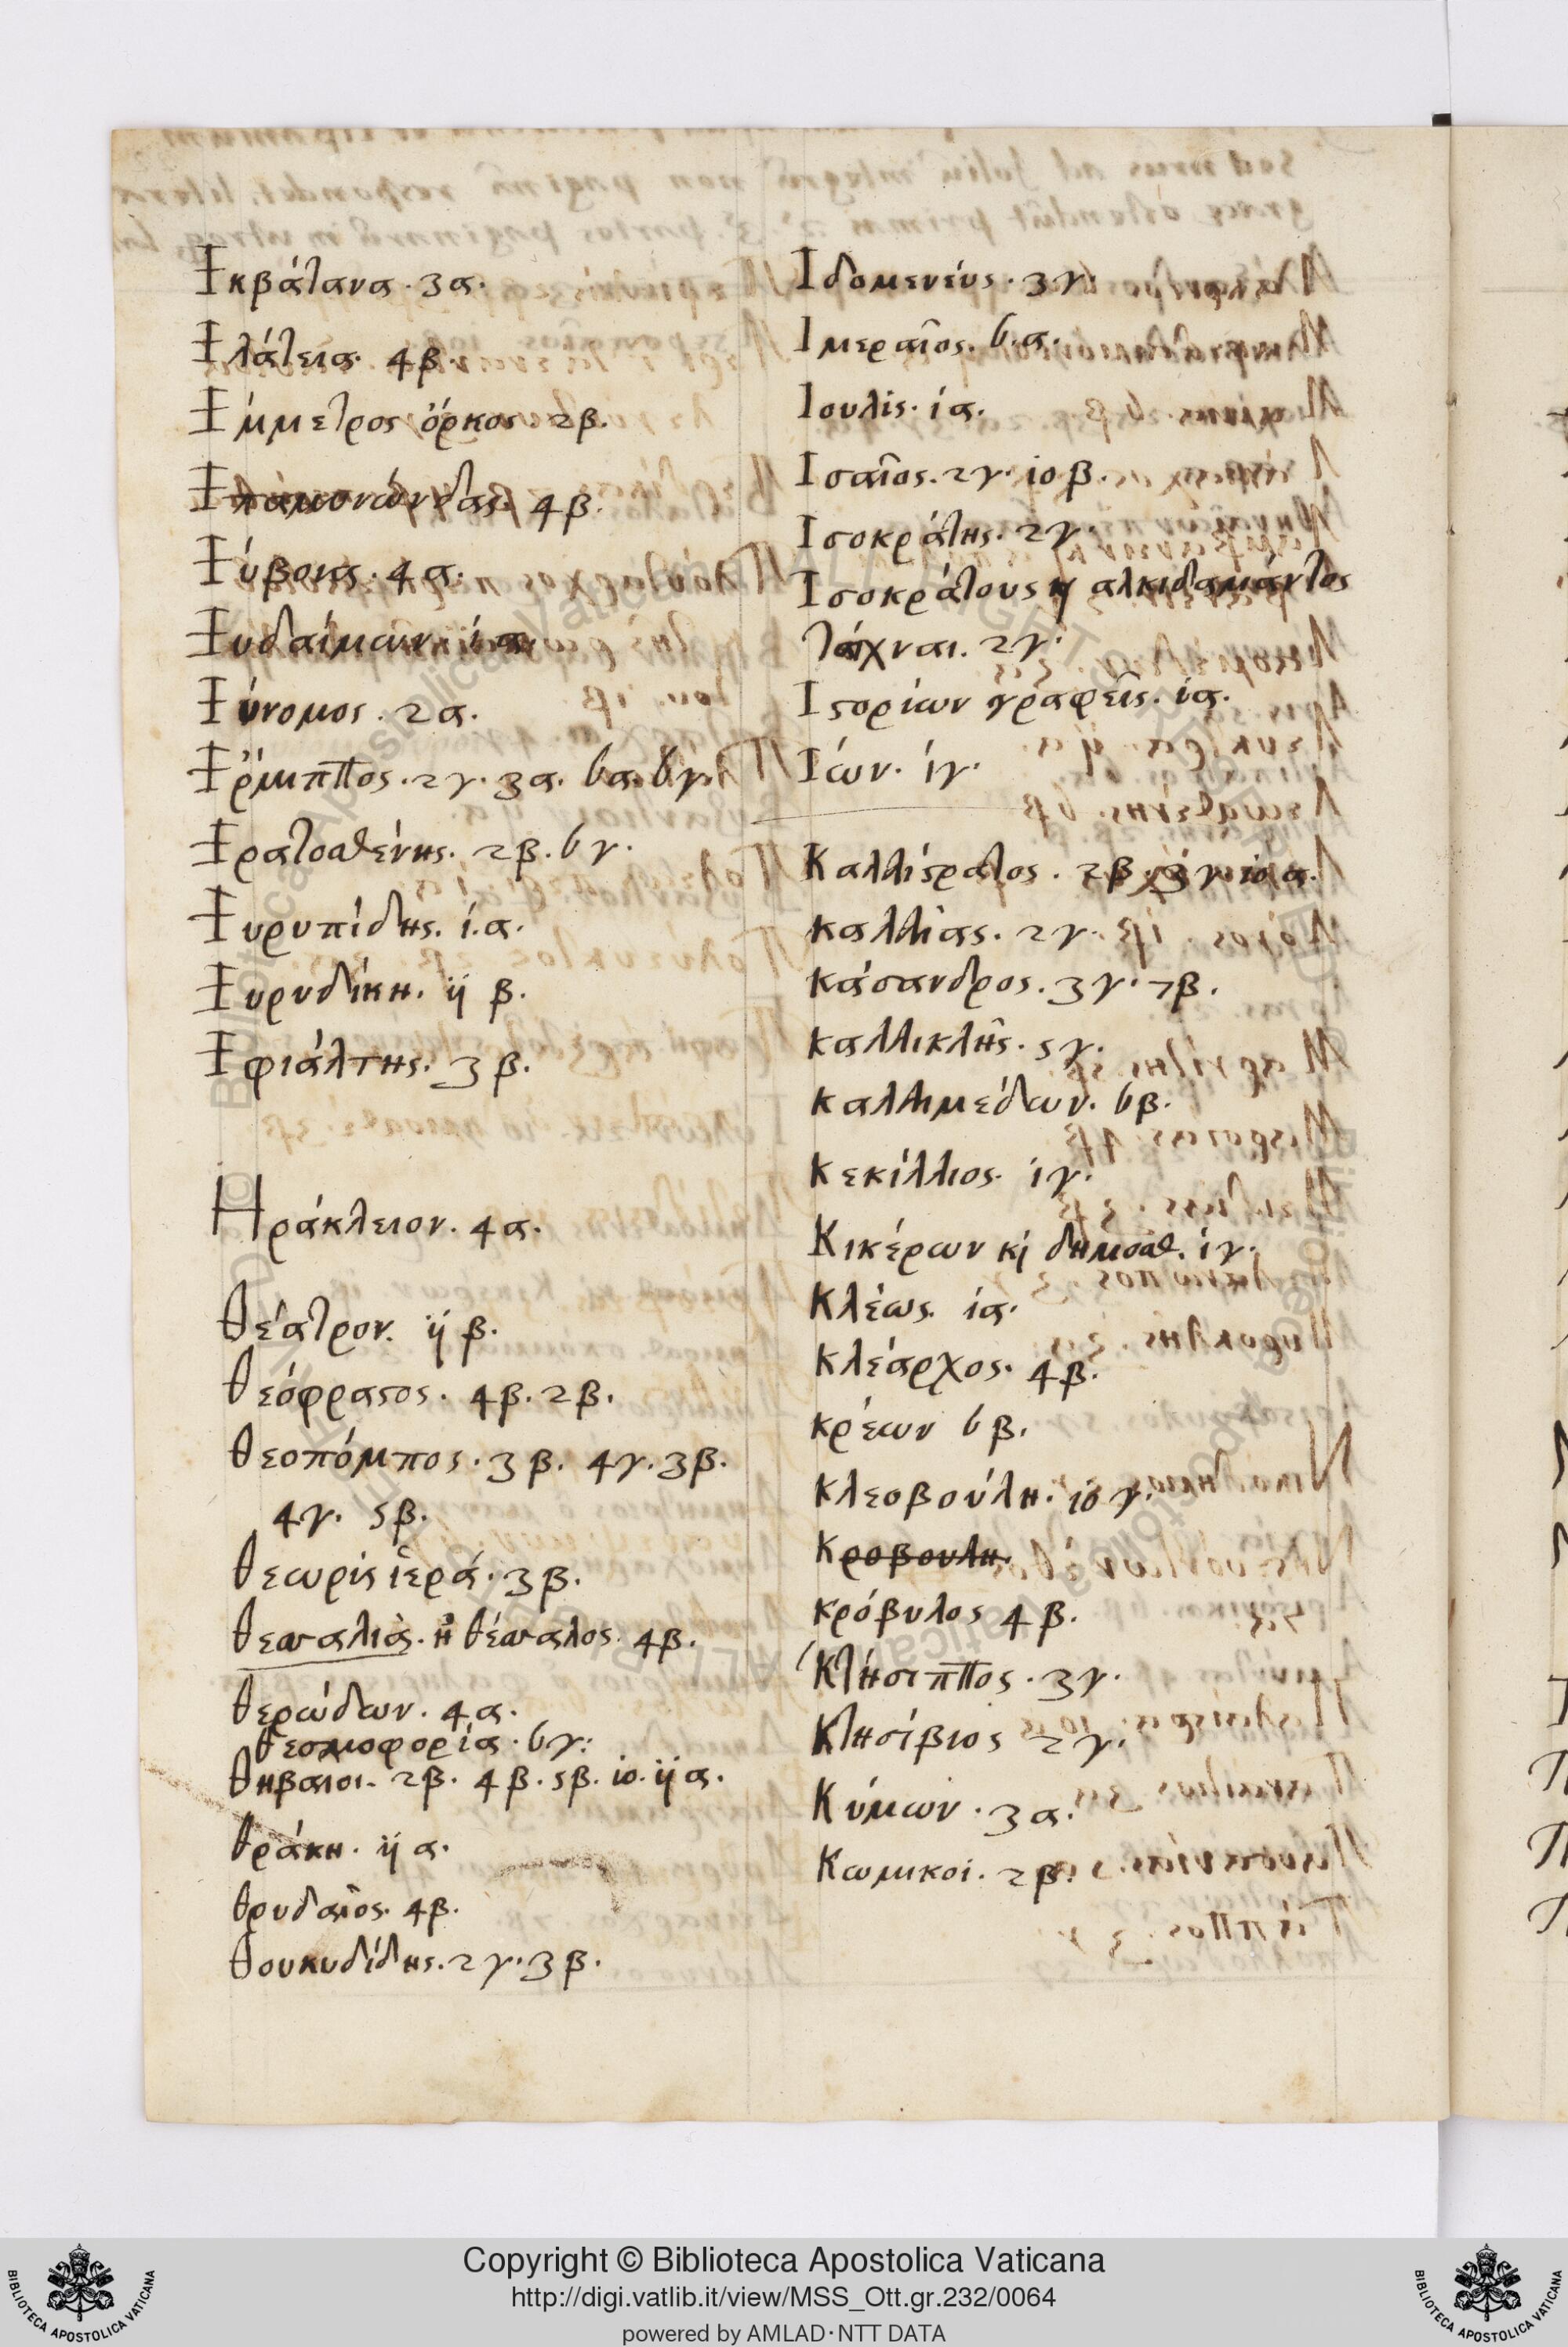 Εκβάτανα. 3α.
Ελάτεια. 4β.
Εμμετρος όρκος. 2β.
Επαμονώνδας. 4β.
Εύβοια. 4α.
Ευδαίμων. ία
Εύνομος. 2α.
Ερμιππος. 2γ. 3α. 6α. 6γ.
Ερατοσθένης. 2β. 6γ.
Ευρυπίδης. ί.α.
Ευρυδίκη. ij β.
Εφιάλτης. 3β.
Ηράκλειον. 4α.
θέατρον. ij β.
θεόφραςος. 4β. 2β.
θεοπόμπος. 3β. 4γ. 3β.
4γ. 5β.
θεωρίς ἱερά. 3β.
θεσσαλιὰ. ἢ θέσσαλος. 4β.
θερώδων. 4α.
θεσμοφορία. 6γ:
θηβαιοι. 2β. 4β. 5β. io. ij α.
θράκη. ij α.
θρυδαῖος. 4β.
θουκυδίδης. 2γ. 3β.
Ιδομενέυς. 3γ.
Ιμεραῖος. 6.α.
Ιουλίς. ία.
Ισαῖος. 2γ. io β.
Ισοκράτης. 2γ.
Ισοκράτους ἢ αλκιδαμάντος
τάχναι. 2γ.
Ιςορίων γραφεῖς. ία.
Ιών. ίγ.
Καλλίςρατος. 2β. 3γ io α.
καλλίας. 2γ.
κάσανδρος. 3γ. 7β.
καλλικλῆς. 5γ.
καλλιμέδων. 6β.
κεκίλλιος. ίγ.
Κικέρων κὶ δημοσθ. ίγ.
Κλέως. ία.
κλέαρχος. 4β.
κρέων 6β.
κλεοβούλη. io γ.
Κροβουλη.
κρόβυλος 4β.
Κτήσιππος. 3γ.
Κτησίβιος 2γ.
Κύμων. 3α.
Κωμικοί. 2β.
Copyright © Biblioteca Apostolica Vaticana
http://digi.vatlib.it/view/MSS_Ott.gr.232/0064
powered by AMLAD·NTT DATA
BIBLIOTECA APOSTOLICA VATICANA
BIBLIOTECA APOSTOLICA VATICANA